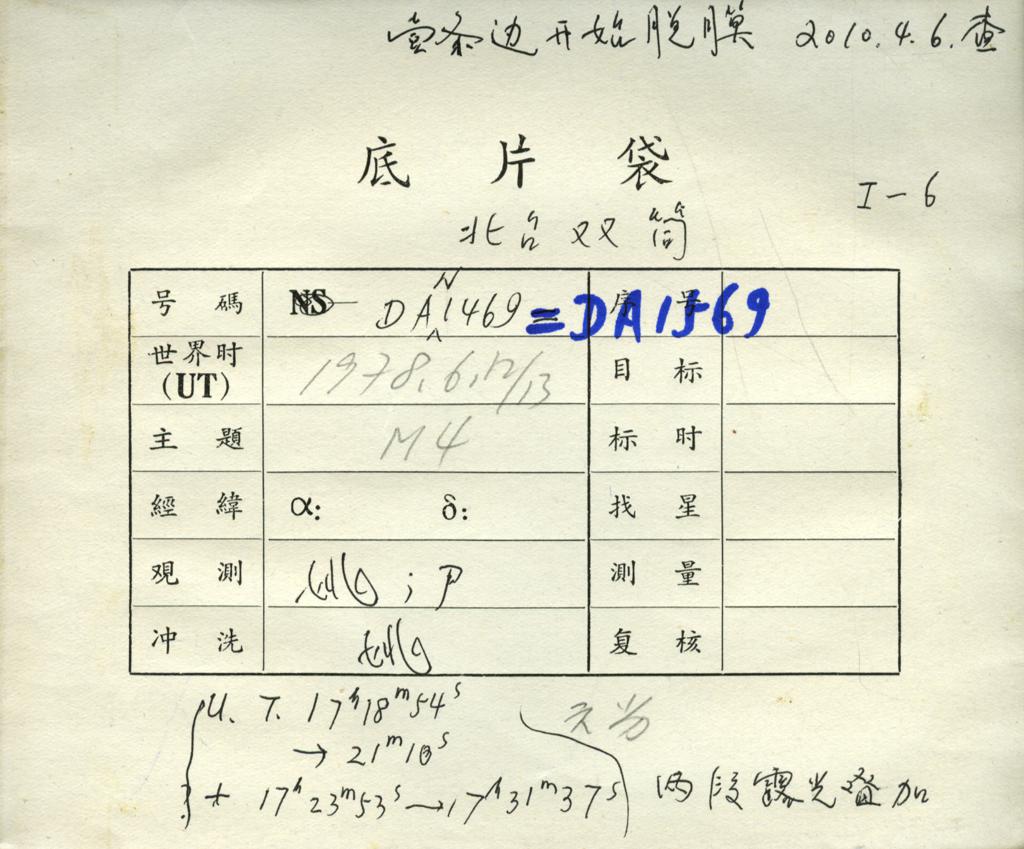 边开始脱膜 2010.4.6.查
底片袋
I-6
北台双筒
号碼 NS DAN1469 = DA1569 序号
世界时 (UT) 1978.6.12/13 目标
主題 M4 标时
經緯 α: δ: 找星
观測 ; P 測量
冲洗 复核
U. T. 17h18m54s
→ 21m18s
+ 17h23m53s → 17h31m37s 两段露光叠加